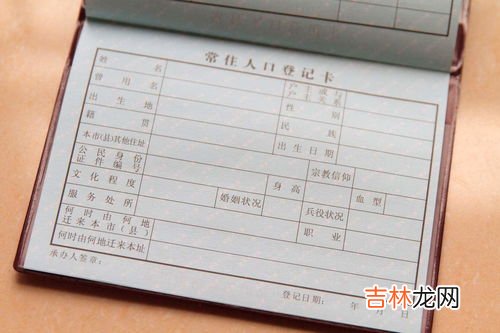 常住人口登记卡
姓名 户主或与户主关系
曾用名 性别
出生地 民族
籍贯 出生日期
本市(县)其他住址 宗教信仰
公民身份证件编号 身高 血型
文化程度 婚姻状况 兵役状况
服务处所 职业
何时由何地迁来本市(县)
何时由何地迁来本址
承办人签章:
登记日期: 年 月 日
吉林龙网